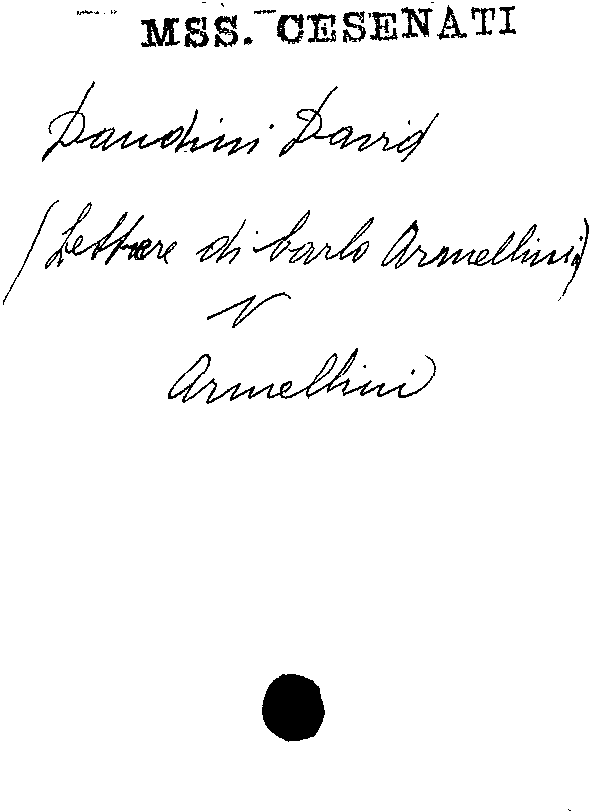 MSS. CESENATI
Dandini David
(Lettere di Carlo Armellini)
V
Armellini